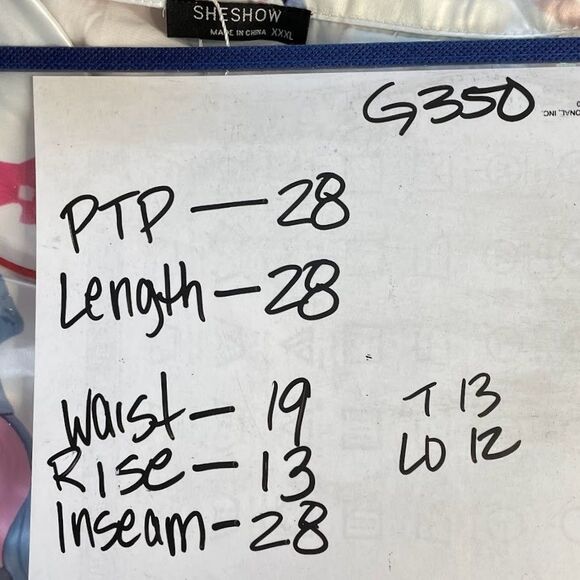 SHESHOW
MADE IN CHINA XXXL
G350
ONAL, INC.
PTP — 28
Length — 28
Waist — 19
T 13
LO 12
Rise — 13
Inseam — 28